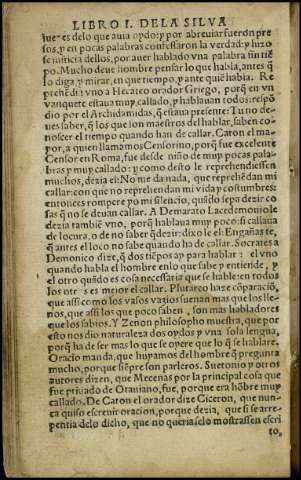 LIBRO I. DELA SILVA
jue es delo que auia oydo: y por abreuiar fuerõ pre
sos, y en pocas palabras confessaron la verdad: y hizo
se iusticia dellos, por auer hablado vna palabra sin tiẽ
po. Mucho deue hombre pensar lo que habla, antes q̃
lo diga, y mirar, en que tiempo, y ante quiẽ habla. Re
prehẽdiã vno a Hecateo orador Griego, porq̃ en vn
vanquete estaua muy callado, y hablauan todos: respõ
dio por el Archidamidas, q̃ estaua presente: Tu no de-
ues saber, q̃ los que son maestros del hablar, saben co-
noscer el tiempo quando han de callar. Caton el ma-
yor, a quien llamamos Censorino, porq̃ fue excelente
Censor en Roma, fue desde niño de muy pocas pala-
bras y muy callado: y como desto le reprehendiessen
muchos, dezia el: No me da nada, que reprehẽdan mi
callar: con que no reprehendan mi vida y costumbres:
entonces rompere yo mi silencio, quãdo sepa dezir co
sas q̃ no se deuan callar. A Demarato Lacedemonio le
dezia tambiẽ vno, porq̃ hablaua muy poco: si callaua
de locura, o de no saber q̃ dezir: dixo le el: Engañas te,
q̃ antes el loco no sabe quando ha de callar. Socrates a
Demonico dize, q̃ dos tiẽpos ay para hablar: el vno
quando habla el hombre en lo que sabe y entiende, y
el otro quãdo es cosa necessaria que se hable: en todos
los otros es mejor el callar. Plutarco haze cõparaciõ,
que assi como los vasos vazios suenan mas que los lle-
nos, que assi los que poco saben, son mas habladores
que los sabios. Y Zenon philosopho muestra, que por
esto nos dio naturaleza dos oydos y vna sola lengua,
porq̃ ha de ser mas lo que se oyere que lo q̃ se hablare.
Oracio manda, que huyamos del hombre q̃ pregunta
mucho, porque siẽpre son parleros. Suetonio y otros
autores dizen, que Mecenas por la principal cosa que
fue priuado de Otauiano, fue, porque era hõbre muy
callado. De Caton el orador dize Ciceron, que nun-
ca quiso escreuir oracion, porque dezia, que si se arre-
pentia delo dicho, que no queria selo mostrassen escri
to,